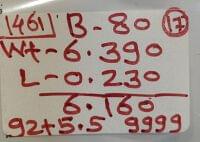 1461 B-80 17
Wt-6.390
L-0.230
6.160
92+5.5 9999